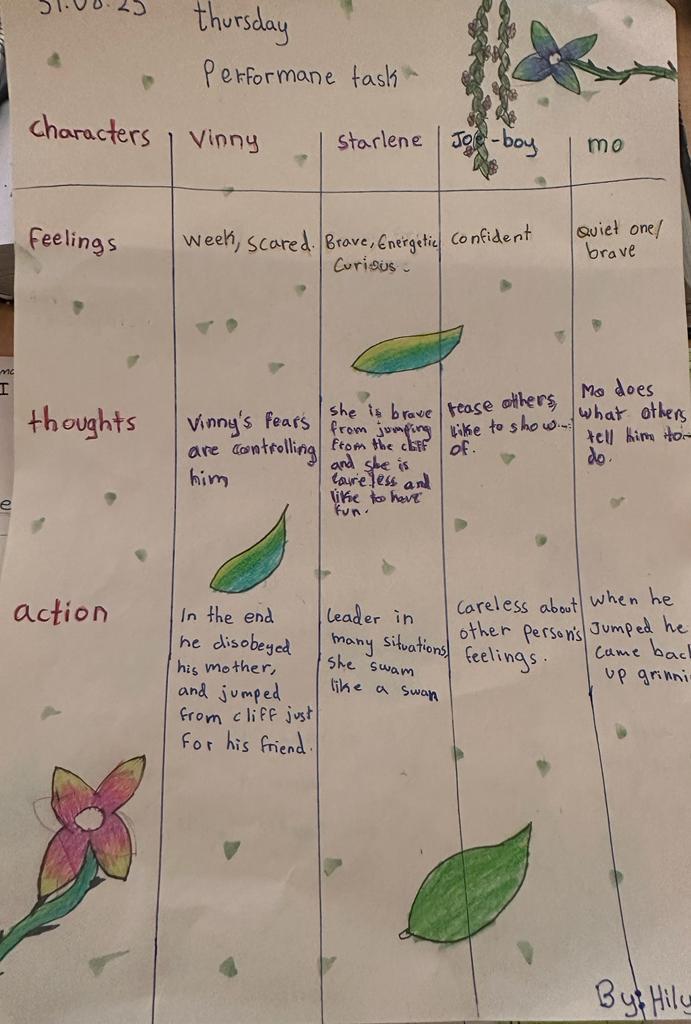 31.08.23
thursday
Performane task
Characters
Vinny
Starlene
Joe-boy
mo
Feelings
Week, scared.
Brave, Energetic
Curious.
Confident
Quiet one/
brave
thoughts
Vinny's fears
are controlling
him
she is brave
from jumping
from the cliff
and she is
careless and
like to have
fun.
tease others,
like to show
of.
Mo does
what others
tell him to
do.
action
In the end
he disobeyed
his mother,
and jumped
from cliff just
For his friend.
Leader in
many situations,
she swam
like a swan
Careless about
other person's
feelings.
when he
Jumped he
came back
up grinni
By: Hily